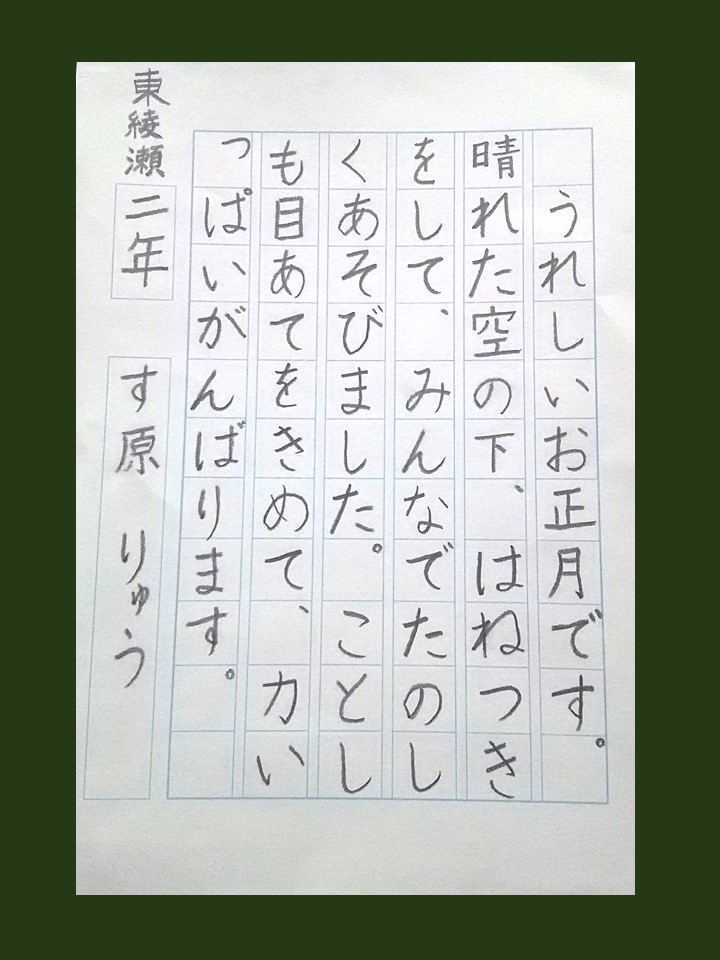 うれしいお正月です。
晴れた空の下、はねつき
をして、みんなでたのし
くあそびました。ことし
も目あてをきめて、力い
っぱいがんばります。
東綾瀬 二年 す原 りゅう